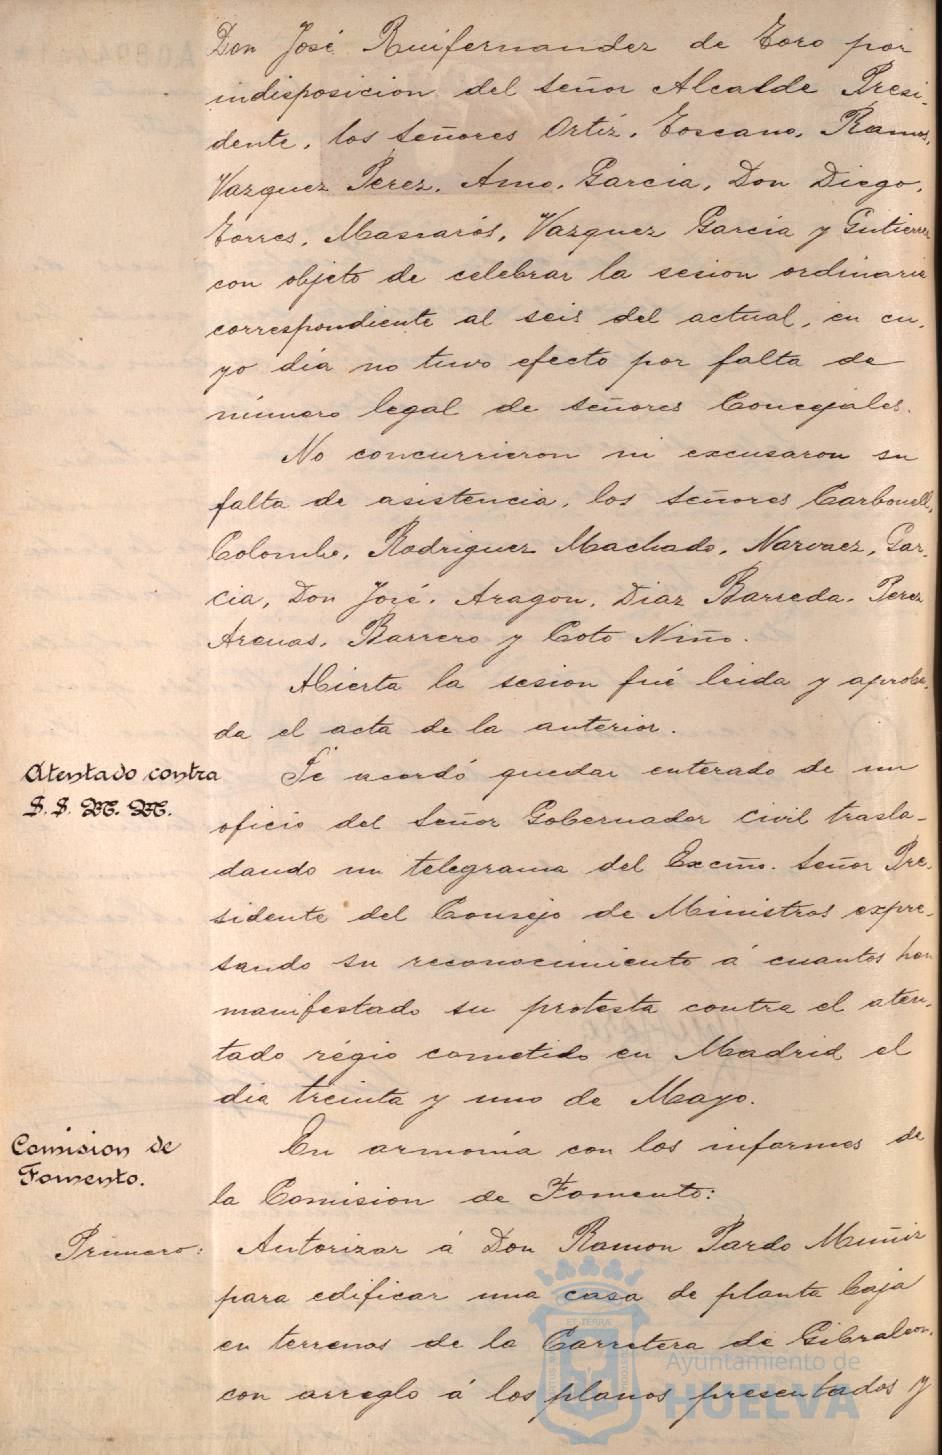 Don José Ruifernandez de Toro por
indisposicion del señor Alcalde Presi-
dente, los señores Ortiz, Toscano, Ramos,
Vazquez Perez, Amo, Garcia, Don Diego,
Torres, Mascarós, Vazquez Garcia y Gutierrez
con objeto de celebrar la sesion ordinaria
correspondiente al seis del actual, en cu-
yo dia no tuvo efecto por falta de
número legal de señores Concejales.
No concurrieron ni excusaron su
falta de asistencia, los señores Carbonell,
Colombo, Rodriguez Machado, Narvaez, Gar-
cia, Don José, Aragon, Diaz Barreda, Perez
Arenas, Barrero y Coto Niño.
Abierta la sesion fué leida y aproba-
da el acta de la anterior.
Atentado contra
S.S. M.M.
Se acordó quedar enterado de un
oficio del señor Gobernador civil trasla-
dando un telegrama del Excmo. señor Pre-
sidente del Consejo de Ministros expre-
sando su reconocimiento á cuantos han
manifestado su protesta contra el aten-
tado régio cometido en Madrid el
dia treinta y uno de Mayo.
Comision de
Fomento.
En armonia con los informes de
la Comision de Fomento:
Primero: Autorizar á Don Ramon Pardo Muñiz
para edificar una casa de planta baja
en terrenos de la Carretera de Gibraleon,
con arreglo á los planos presentados y
Ayuntamiento de
HUELVA